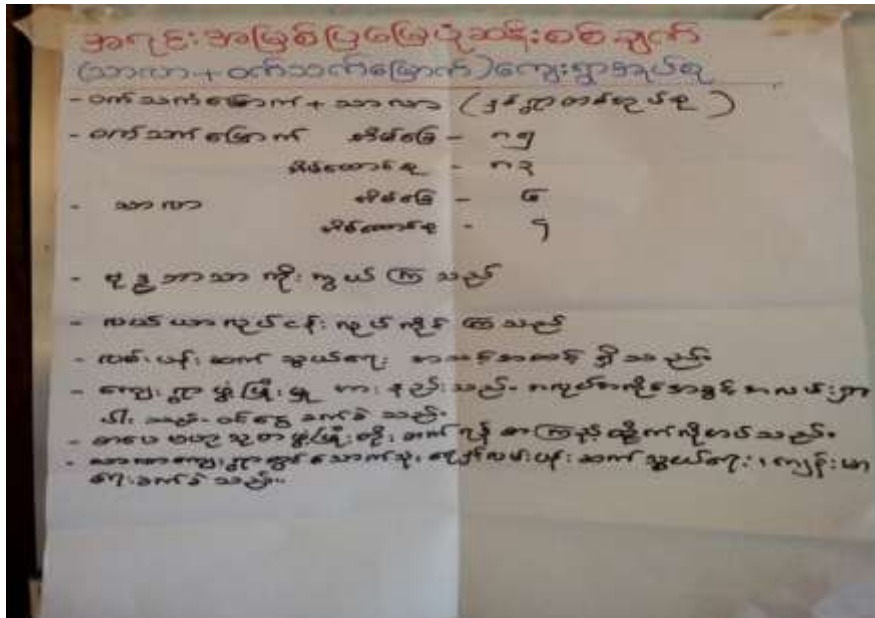 အရင်းအမြစ်ပြမြေပုံဆန်းစစ်ချက်
(သာလာ + ဝက်သက်မြောက်) ကျေးရွာအုပ်စု
- ဝက်သက်မြောက် + သာလာ (နှစ်ရွာတစ်အုပ်စု)
- ဝက်သက်မြောက် အိမ်ခြေ - ၈၅
အိမ်ထောင်စု - ၈၃
- သာလာ အိမ်ခြေ - ၆
အိမ်ထောင်စု - ၅
- ဗုဒ္ဓဘာသာ ကိုးကွယ်ကြသည်
- လယ်ယာလုပ်ငန်း လုပ်ကိုင်ကြသည်
- လမ်းပန်းဆက်သွယ်ရေး အသင့်အတင့် ရှိသည်။
- ကျေးရွာဖွံ့ဖြိုးမှု အားနည်းသည်။ အလုပ်အကိုင်အခွင့်အလမ်းရှား
ပါးသည်။ ဝင်ငွေခက်ခဲသည်။
- စာပေဗဟုသုတဖွံ့ဖြိုးတိုးတက်ရန် စာကြည့်တိုက်လိုအပ်သည်။
- သာလာကျေးရွာတွင် သောက်သုံးရေ၊ လမ်းပန်းဆက်သွယ်ရေး၊ ကျန်းမာ
ရေးခက်ခဲသည်။